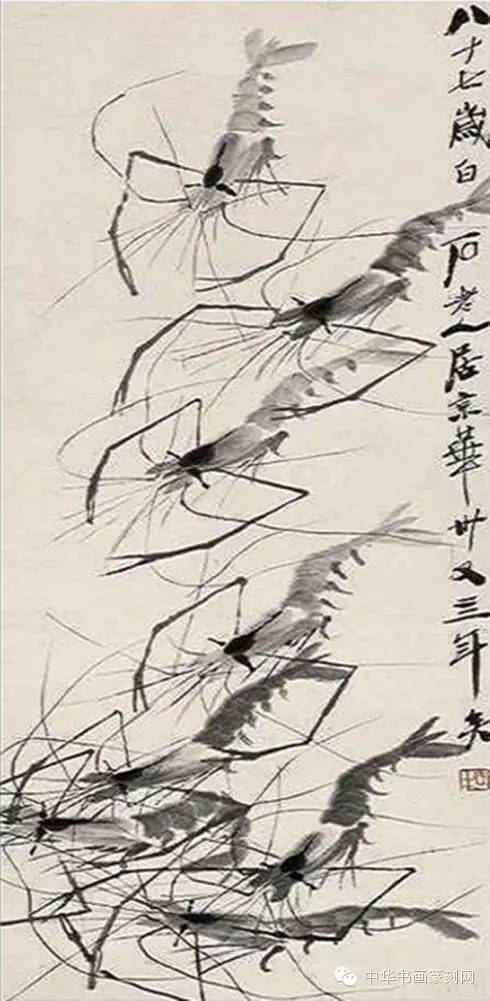 八十七歲白石老人居京華卅又三年矣
中华书画篆刻网